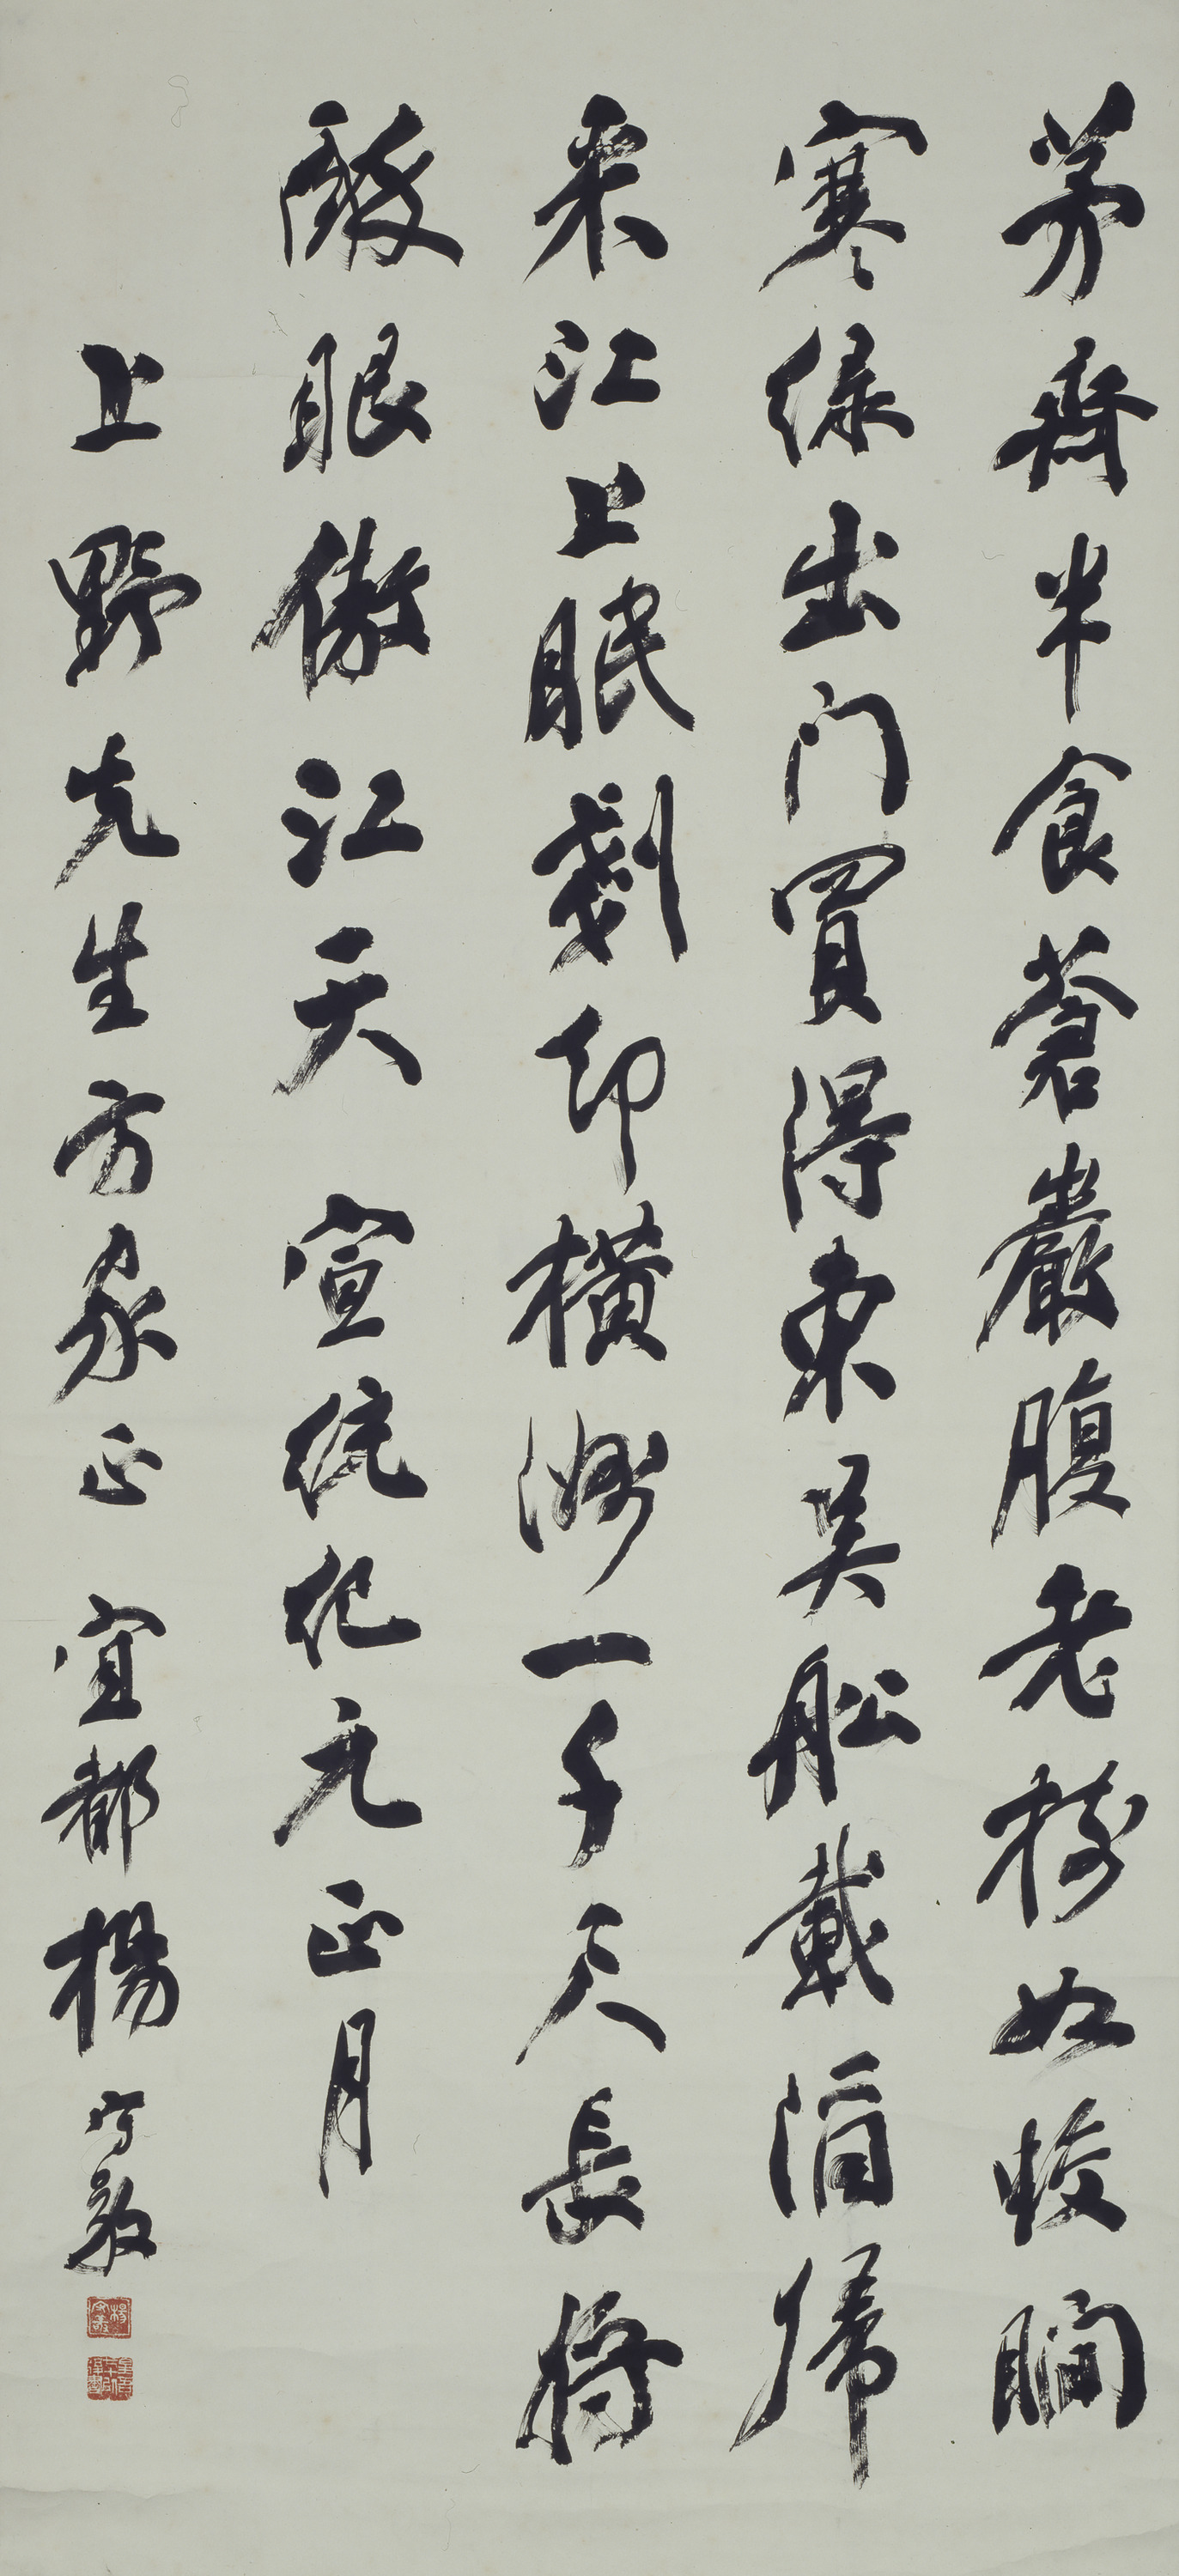 茅齋半食蒼巖腹老樹如蛟瞯
寒綠出門買得東吳船載酒歸
來江上眠剗却橫洲一千尺長將
醉眼傲江天 宣統紀元正月
上野先生方家正 宜都楊守敬